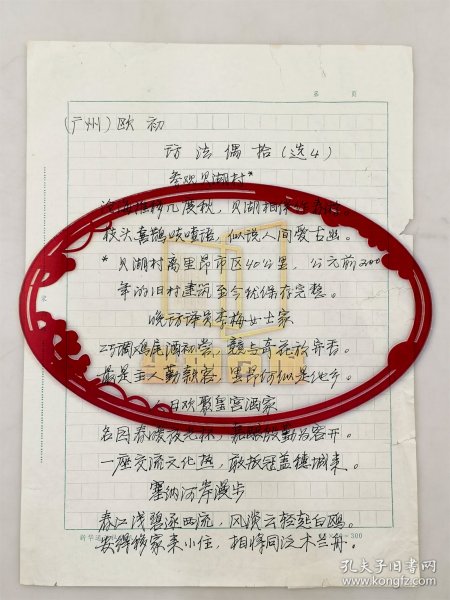 名 页
(广州) 欧 初
访 法 偶 拾 (选4)
参观贝湖村*
几度秋,贝湖
枝头喜鹊唉喳语,似说人间爱古幽。
* 贝湖村离里昂市区40公里,公元前200
年的旧村建筑至今犹保存完整。
晚访译员李梅女士家
鸡尾酒初尝,
最是主人勤款客,里昂仿似是他乡。
日欢聚皇宫酒家
名园春暖夜光杯,
一座交流文化热,敢教冠盖穗城来。
塞纳河岸漫步
春江浅碧逐西流,风淡云轻起白鸥。
安得移家来小住,相将同泛木兰舟。
300
孔夫子旧书网